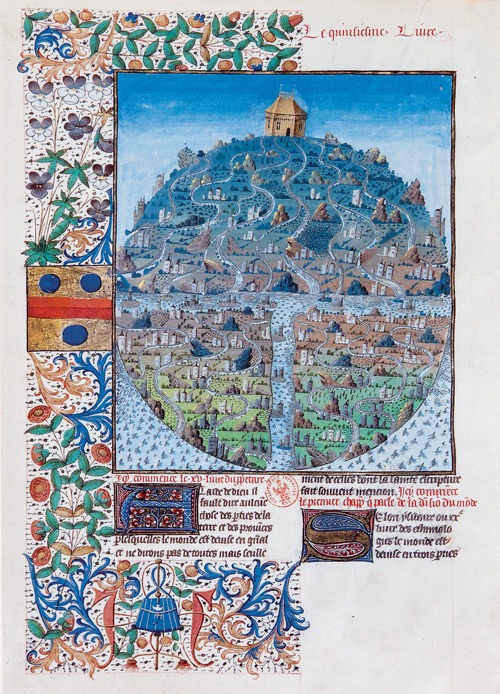 Le quinsiesme . Livre .
Icy commence le .xv. livre du
Laide de dieu il
fault dire aulcune
chose des pties de la
terre et des provices
p lesquelles le monde est devise en gnal
et ne dirons pas de toutes mais seulle
ment de celles dont la sainte escripture
fait souvent mencion. Icy commece
le premier chapp q parle de la divisio du mode
Selon ysidoire ou xve
livre des ethimolo
gies le monde est
devise en trois pties